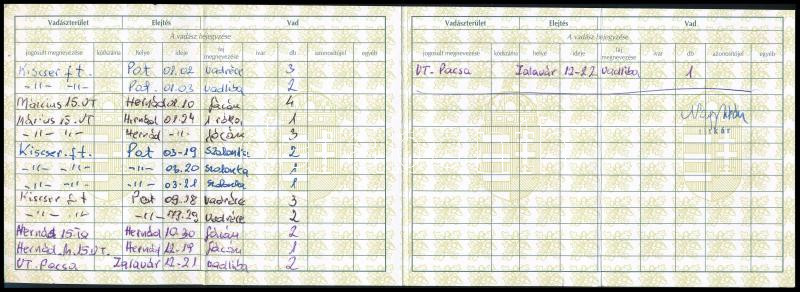 Vadászterület Elejtés Vad
A vadász bejegyzése
jogosult megnevezése kódszáma helye ideje faj megnevezése ivar db azonosítójel egyéb
Kiscser f.t. Pat 01.02 vadréce 3
-"- -"- Pat. 01.03 vadliba 2
Március 15.VT Hernád 01.10 fácán 4
Március 15.VT Hernád 01.24 1 róka 1
-"- -"- Hernád -"- fácán 3
Kiscser.f.t. Pat 03-19 szalonka 2
-"- -"- -"- 03.20 szalonka 1
-"- -"- -"- 03.21 szalonka 1
Kiscser f.t Pat 09.18 vadréce 3
-"- -"- -"- 09.29 vadréce 2
Hernád 15. Hernád 10.30 fácán 2
Hernád.M.15.VT. Hernád 12.19 fácán 1
VT. Pacsa Zalavár 12-21 vadliba 2
Vadászterület Elejtés Vad
A vadász bejegyzése
jogosult megnevezése kódszáma helye ideje faj megnevezése ivar db azonosítójel egyéb
VT. Pacsa Zalavár 12-22 vadliba 1